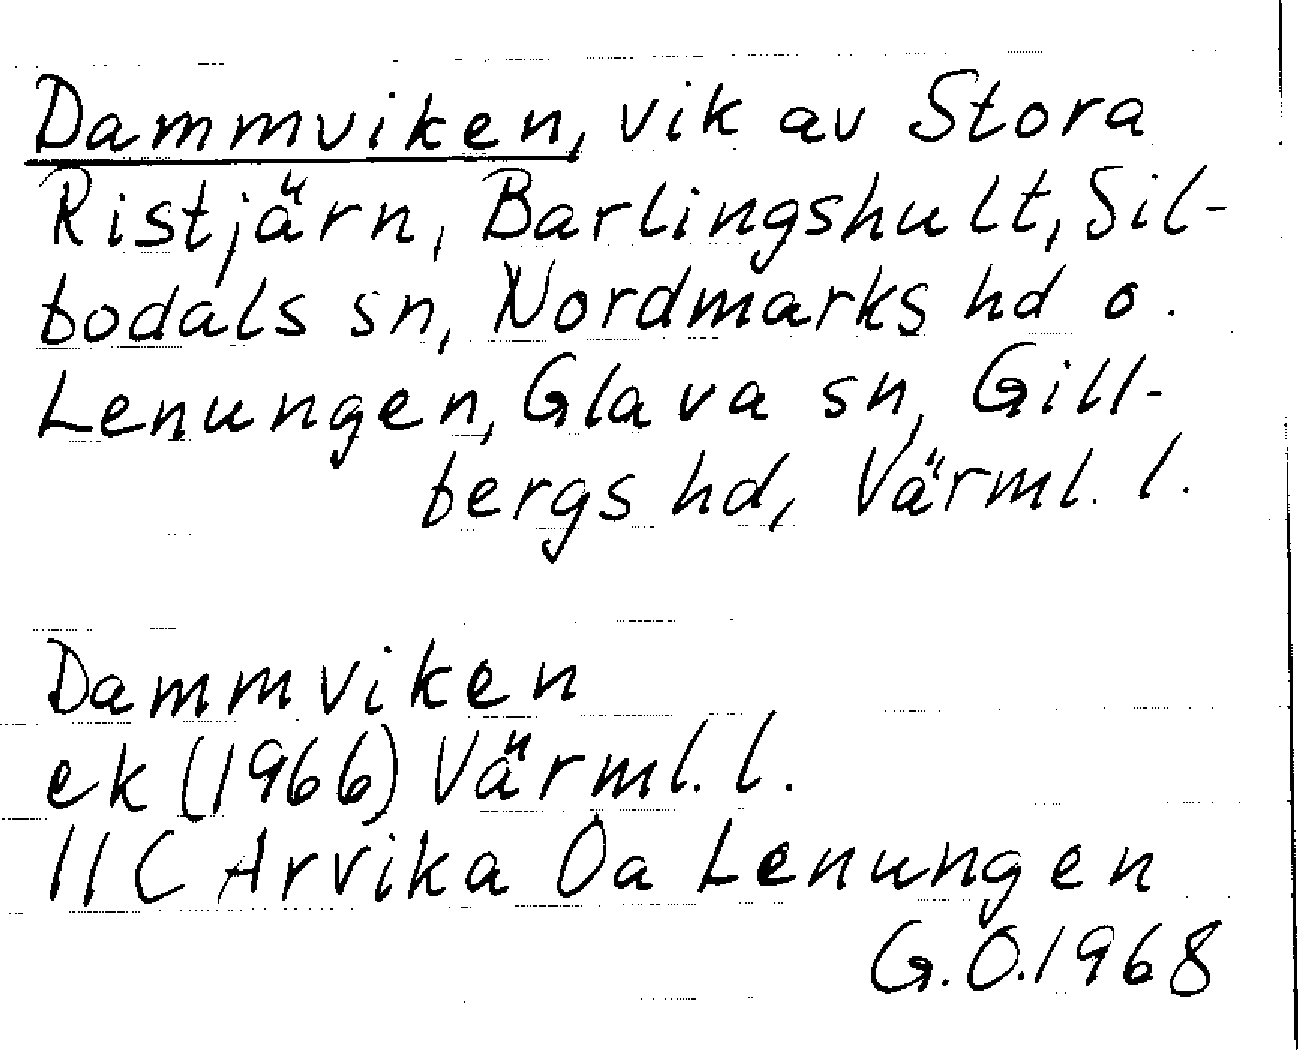 Dammviken, vik av Stora
Ristjärn, Barlingshult, Sil-
bodals sn, Nordmarks hd o.
Lenungen, Glava sn, Gill-
bergs hd, Värml. l.
Dammviken
ek (1966) Värml. l.
11 C Arvika 0a Lenungen
G.O.1968